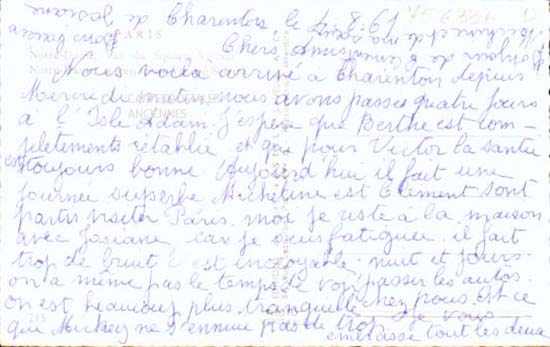 Charenton le 4-8-61
Chers
Nous voilà arrivé à Charenton depuis
Mercredi matin, nous avons passés quatre jours
à l'Isle Adam. J'espère que Berthe est com-
plètements rétablie et que pour Victor la santé
est toujours bonne. Aujourd'hui il fait une
journée superbe Micheline est Clément sont
partis visiter Paris. moi je reste à la maison
avec Josiane car je suis fatiguée. il fait
trop de bruit c est incroyable nuit et jours
on a même pas le temps de voir passer les autos
on est beaucoup plus tranquille chez nous. Est ce
que Mickey ne s'ennuie pas de trop. Je vous
embrasse tout les deux
PARIS
CARTES POSTALES
ANCIENNES
215